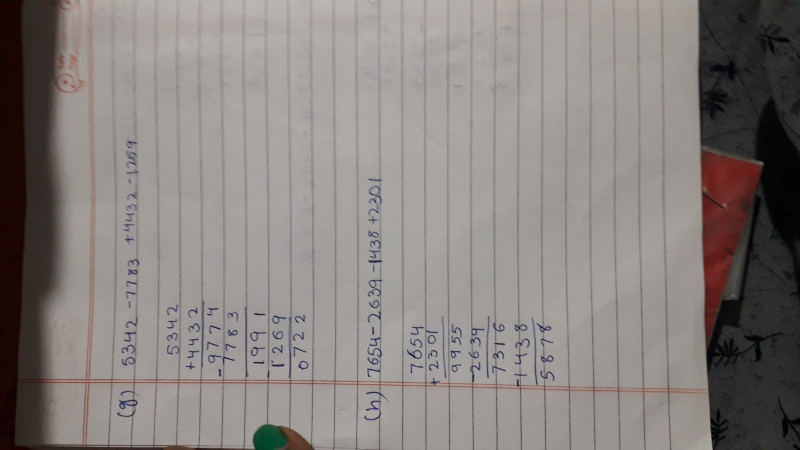 (g) 5342 - 7783 + 4432 - 1269
5342
+4432
9774
-7783
1991
-1269
0722
(h) 7654 - 2639 - 1438 + 2301
7654
+2301
9955
-2639
7316
-1438
5878